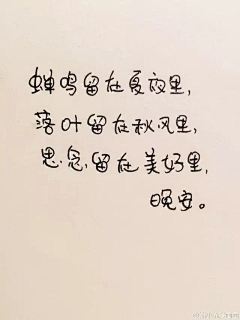 蝉鸣留在夏夜里，
落叶留在秋风里，
思念，留在美好里，
晚安。